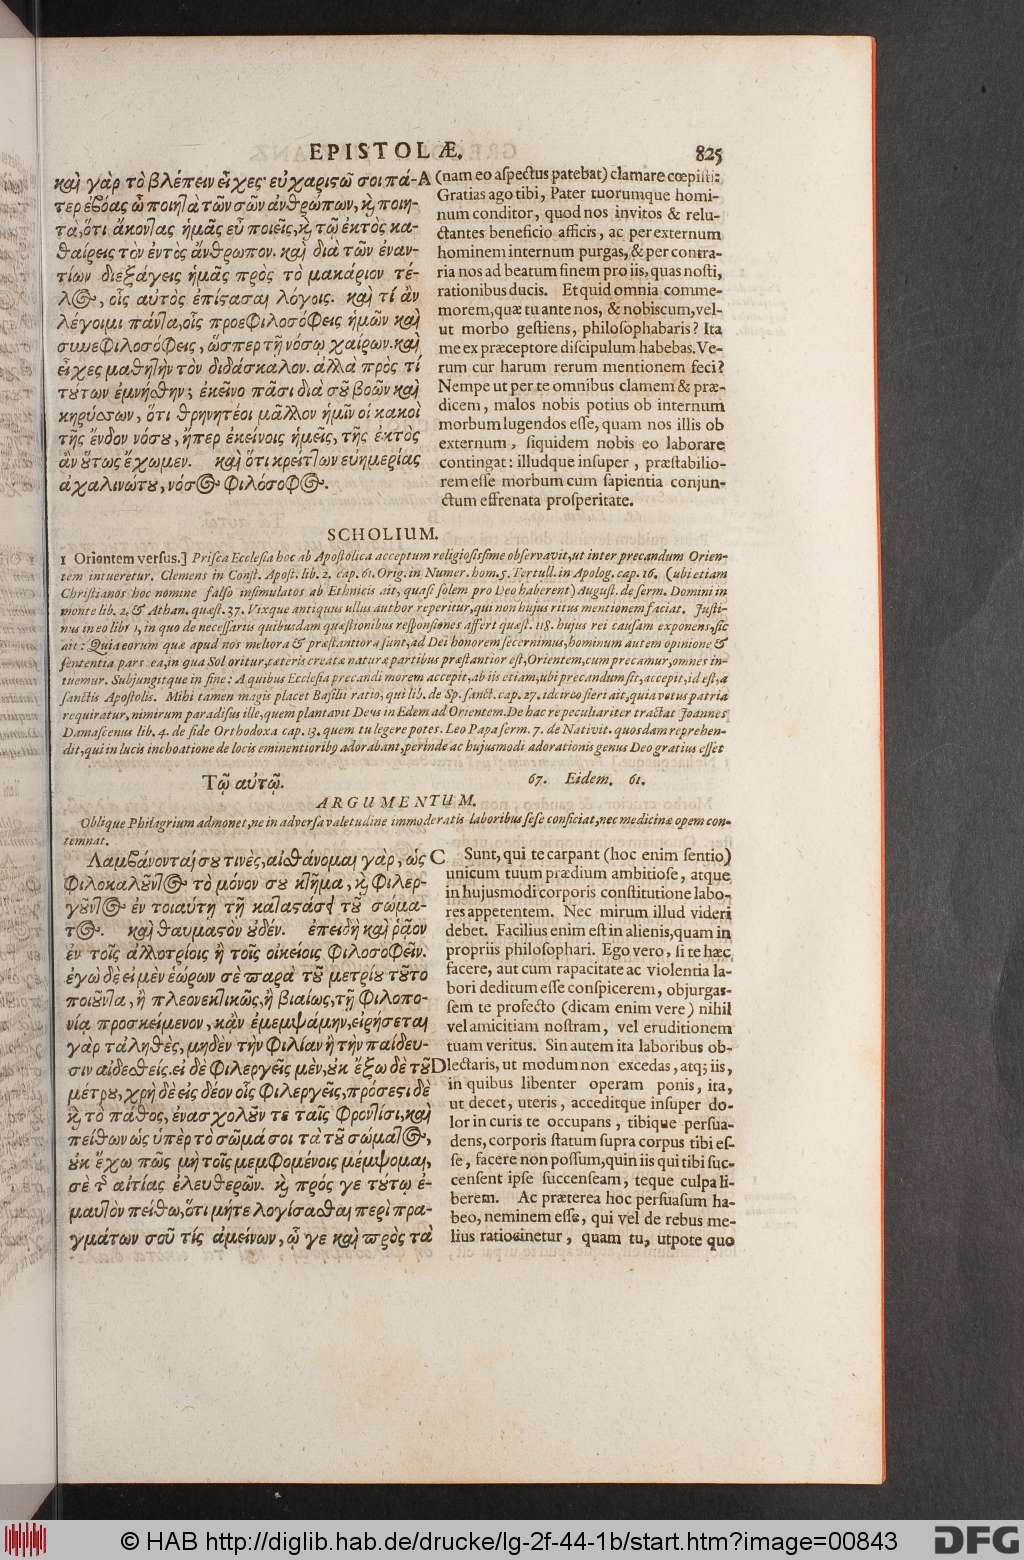 EPISTOLÆ. 825
καὶ γὰρ τὸ βλέπειν εἶχες· εὐχαριστῶ σοι πά-
τερ ἐβόας ὦ ποιητὰ τῶν σῶν ἀνθρώπων, καὶ ποιη-
τὰ, ὅτι ἄκοντας ἡμᾶς εὖ ποιεῖς, καὶ τῷ ἐκτὸς κα-
θαίρεις τὸν ἐντὸς ἄνθρωπον. καὶ διὰ τῶν ἐναν-
τίων διεξάγεις ἡμᾶς πρὸς τὸ μακάριον τέ-
λος, οἷς αὐτὸς ἐπίστασαι λόγοις. καὶ τί ἂν
λέγοιμι πάντα, οἷς προεφιλοσόφεις ἡμῶν καὶ
συνεφιλοσόφεις, ὥσπερ τῇ νόσῳ χαίρων. καὶ
εἶχες μαθητὴν τὸν διδάσκαλον. ἀλλὰ πρὸς τί
τούτων ἐμνήσθην; ἐκεῖνο πᾶσι διὰ σοῦ βοῶν καὶ
κηρύσσων, ὅτι θρηνητέοι μᾶλλον ἡμῖν οἱ κακοὶ
τῆς ἔνδον νόσου, ἤπερ ἐκείνοις ἡμεῖς, τῆς ἐκτὸς
ἂν οὕτως ἔχωμεν. καὶ ὅτι κρείττων εὐημερίας
ἀχαλινώτου, νόσος φιλόσοφος.
A (nam eo aspectus patebat) clamare cœpisti:
Gratias ago tibi, Pater tuorumque homi-
num conditor, quod nos invitos & relu-
ctantes beneficio afficis, ac per externum
hominem internum purgas, & per contra-
ria nos ad beatum finem pro iis, quas nosti,
rationibus ducis. Et quid omnia comme-
morem, quæ tu ante nos, & nobiscum, vel-
ut morbo gestiens, philosophabaris? Ita
me ex præceptore discipulum habebas. Ve-
rum cur harum rerum mentionem feci?
Nempe ut per te omnibus clamem & præ-
dicem, malos nobis potius ob internum
morbum lugendos esse, quam nos illis ob
externum, siquidem nobis eo laborare
contingat: illudque insuper, præstabilio-
rem esse morbum cum sapientia conjun-
ctum effrenata prosperitate.
SCHOLIUM.
1 Orientem versus.] Prisca Ecclesia hoc ab Apostolica acceptum religiosissime observavit, ut inter precandum Orien-
tem intueretur. Clemens in Const. Apost. lib. 2. cap. 61. Orig. in Numer. hom. 5. Tertull. in Apolog. cap. 16. (ubi etiam
Christianos hoc nomine falso insimulatos ab Ethnicis ait, quasi solem pro Deo haberent) August. de serm. Domini in
monte lib. 2. & Athan. quæst. 37. Vixque antiquus ullus author reperitur, qui non hujus ritus mentionem faciat. Justi-
nus in eo libr 1, in quo de necessariis quibusdam quæstionibus responsiones affert quæst. 118. hujus rei causam exponens, sic
ait: Quia eorum quæ apud nos meliora & præstantiora sunt, ad Dei honorem secernimus, hominum autem opinione &
sententia pars ea, in qua Sol oritur, cæteris creatæ naturæ partibus præstantior est, Orientem, cum precamur, omnes in-
tuemur. Subjungitque in fine: A quibus Ecclesia precandi morem accepit, ab iis etiam, ubi precandum sit, accepit, id est, a
sanctis Apostolis. Mihi tamen magis placet Basilii ratio, qui lib. de Sp. sanct. cap. 27. idcirco fieri ait, quia vetus patria
requiratur, nimirum paradisus ille, quem plantavit Deus in Edem ad Orientem. De hac re peculiariter tractat Joannes
Damascenus lib. 4. de fide Orthodoxa cap. 13. quem tu legere potes. Leo Papa serm. 7. de Nativit. quosdam reprehen-
dit, qui in lucis inchoatione de locis eminentiorib9 adorabant, perinde ac hujusmodi adorationis genus Deo gratius esset
Τῷ αὐτῷ. 67. Eidem. 61.
ARGUMENTUM.
Oblique Philagrium admonet, ne in adversa valetudine immoderatis laboribus sese conficiat, nec medicinæ opem con-
temnat.
Λαμβάνονταί σου τινὲς, αἰσθάνομαι γὰρ, ὡς
φιλοκαλοῦντος τὸ μόνον σου κτῆμα, καὶ φιλερ-
γοῦντος ἐν τοιαύτῃ τῇ καταστάσει τοῦ σώμα-
τος. καὶ θαυμαστὸν οὐδέν. ἐπειδὴ καὶ ῥᾷον
ἐν τοῖς ἀλλοτρίοις ἢ τοῖς οἰκείοις φιλοσοφεῖν.
ἐγὼ δὲ εἰ μὲν ἑώρων σὲ παρὰ τοῦ μετρίου τοῦτο
ποιοῦντα, ἢ πλεονεκτικῶς, ἢ βιαίως, τῇ φιλοπο-
νίᾳ προσκείμενον, κἂν ἐμεμψάμην, εἰρήσεται
γὰρ τἀληθὲς, μηδὲν τὴν φιλίαν ἢ τὴν παίδευ-
σιν αἰδεσθείς. εἰ δὲ φιλεργεῖς μὲν, οὐκ ἔξω δὲ τοῦ
μέτρου, χρὴ δὲ εἰς δέον οἷς φιλεργεῖς, πρόσεστι δὲ
καὶ τὸ πάθος, ἐνασχολοῦν τε ταῖς φροντίσι, καὶ
πείθων ὡς ὑπὲρ τὸ σῶμά σοι τὰ τοῦ σώματος,
οὐκ ἔχω πῶς μὴ τοῖς μεμφομένοις μέμψομαι,
σὲ τῆς αἰτίας ἐλευθερῶν. καὶ πρός γε τούτῳ ἐ-
μαυτὸν πείθω, ὅτι μήτε λογίσασθαι περὶ πρα-
γμάτων σοῦ τίς ἀμείνων, ᾧ γε καὶ πρὸς τὰ
C Sunt, qui te carpant (hoc enim sentio)
unicum tuum prædium ambitiose, atque
in hujusmodi corporis constitutione labo-
res appetentem. Nec mirum illud videri
debet. Facilius enim est in alienis, quam in
propriis philosophari. Ego vero, si te hæc
facere, aut cum rapacitate ac violentia la-
bori deditum esse conspicerem, objurgas-
sem te profecto (dicam enim vere) nihil
vel amicitiam nostram, vel eruditionem
tuam veritus. Sin autem ita laboribus ob-
D lectaris, ut modum non excedas, atq; iis,
in quibus libenter operam ponis, ita,
ut decet, uteris, acceditque insuper do-
lor in curis te occupans, tibique persua-
dens, corporis statum supra corpus tibi es-
se, facere non possum, quin iis qui tibi suc-
censent ipse succenseam, teque culpa li-
berem. Ac præterea hoc persuasum ha-
beo, neminem esse, qui vel de rebus me-
lius ratiocinetur, quam tu, utpote quo
© HAB http://diglib.hab.de/drucke/lg-2f-44-1b/start.htm?image=00843 DFG